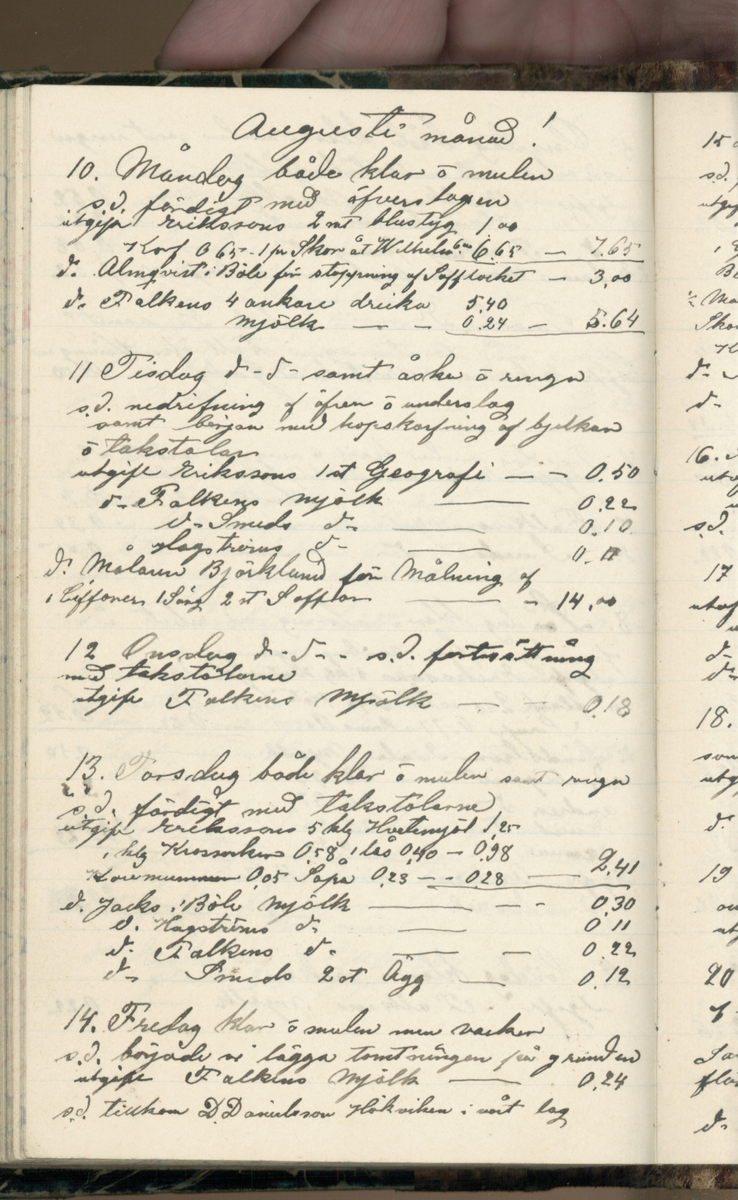 Augusti månad!
10. Måndag både klar o mulen
s.d. färdigt med öfverslagen
utgift Erikssons 2 mt blustyg 1,00
Korf 0.65 - 1 pr Skor åt Wilhelm 6,00 6.65 — 7.65
d. Almqvist i Böle för stoppning af Sofflocket — 3,00
d- Falkens 4 ankare dricka 5.40
mjölk — - 0.24 — 5.64
11 Tisdag d-d- samt åska o regn
s.d. nedrifning af öfren o underslag
samt början med hopskarfning af bjelkar
o takstolar
utgift Erikssons 1 st Geografi — - 0.50
d- Falkens Mjölk — 0.22
d- Smeds d- — 0.10
Hagströms d- — 0.11
d. Målaren Björklund för Målning af
1 Ciffoner 1 Säng 2 st Soffor — - 14,00
12 Onsdag d-d- - s.d. fortsättning
med takstolarne
utgift Falkens Mjölk — - 0.18
13. Torsdag både klar o mulen samt regn
s.d. färdigt med takstolarne
utgift Erikssons 5 kelg Hvetemjöl 1,25
1 kelg Krossocker 0,58 1 lås 0,40 - 0.98
0,05 Såpa 0.23 - 0.28 — 2.41
d. Jacks i Böle Mjölk — - 0.30
d. Hagströms d- — 0.11
d- Falkens d- — - 0.22
d- Smeds 2 st Ägg — 0.12
14. Fredag klar o mulen men vacker
s.d. började vi lägga tomtningen på grunden
utgift Falkens Mjölk — 0.24
s.d. tillkom D. Danielsson Hökviken i vårt lag